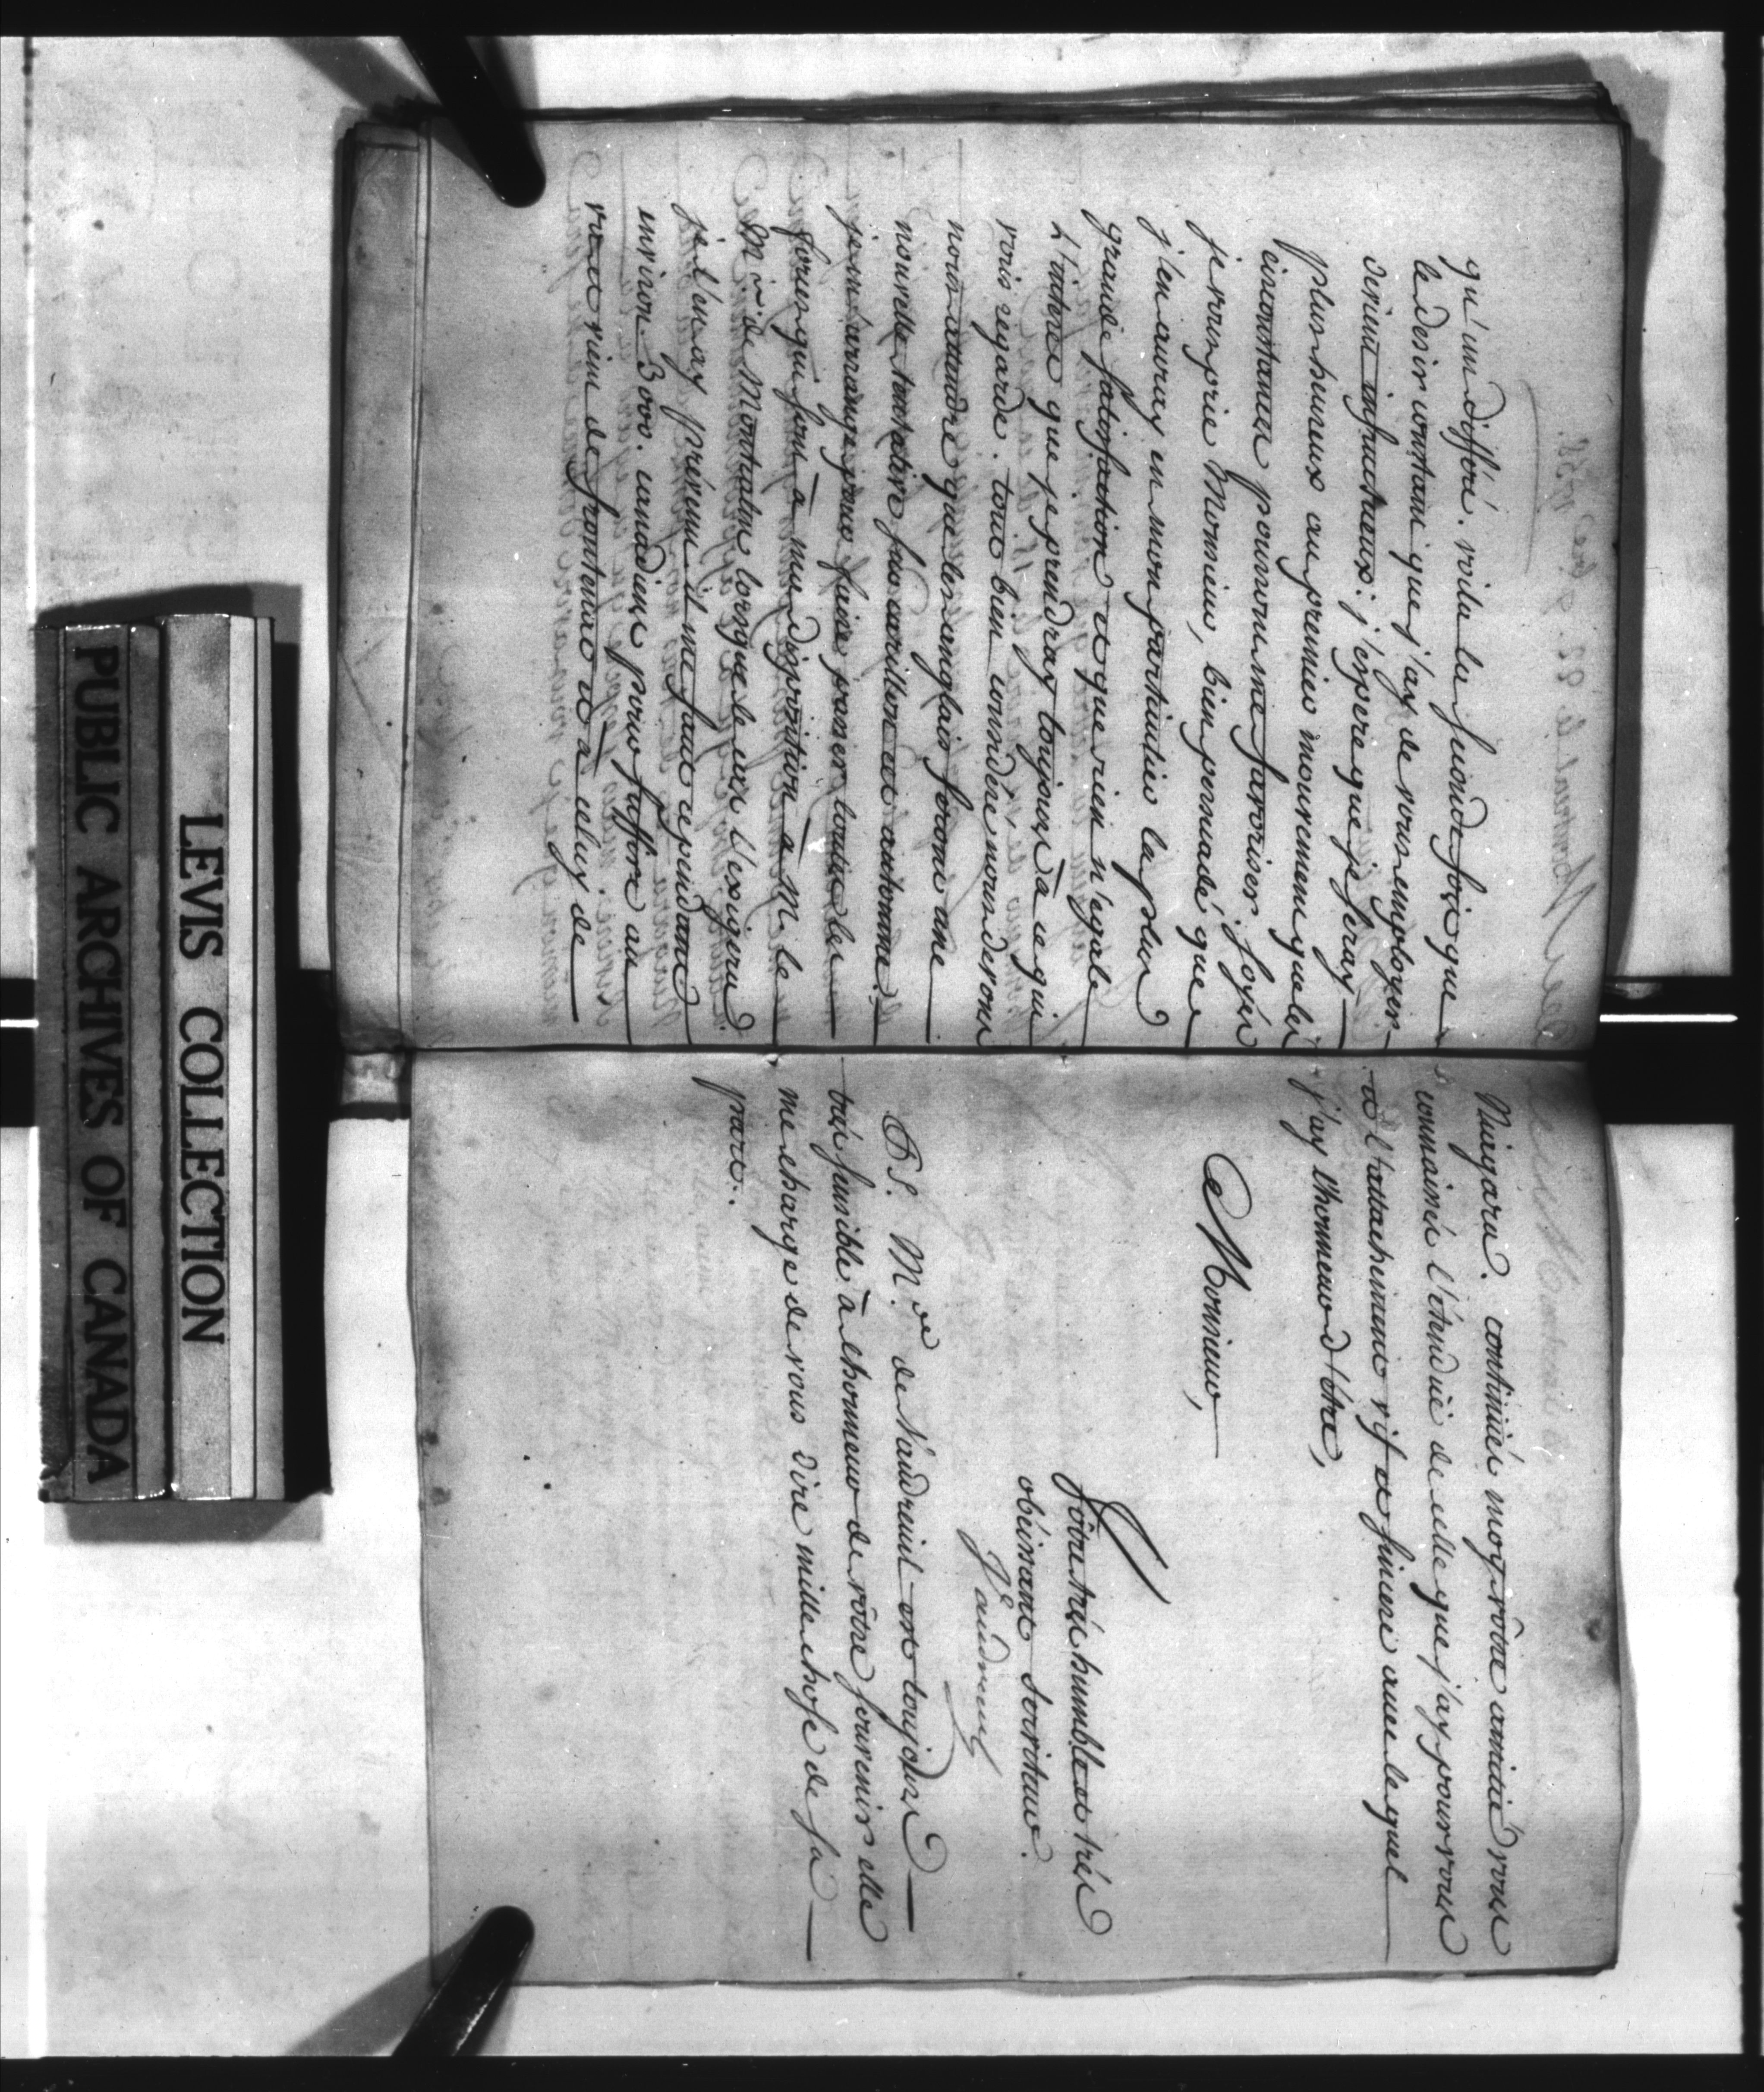 qu'un differé. voila la seconde fois que
le desir constant que j'ay de vous employer
devient infructueux: j'espere que je seray
plus heureux au premier mouvement que les
circonstances pourront me favoriser. soyés
je vous prie Monsieur, bien persuadé que
j'en auray en mon particulier la plus
grande satisfaction et que rien n'egale
L'interet que je prendray toujours à ce qui
vous regarde. tout bien consideré nous devons
nous attendre que les anglais feront une
nouvelle tentative sur carillon cet automne.
je m'arrange pour faire passer toutes les
forces qui sont à ma disposition à M. le
M. is de Montcalm lorsque le cas l'exigera.
je l'en ay prévenu il me faut cependant
environ 3000. canadiens pour suffire au
rien de frontenac et à celuy de
Niagara. continués moy vôtre amitié vous
connaissés l'étendüe de celle que j'ay pour vous
et l'attachement vif et sincere avec lequel
j'ay l'honneur d'être,
Monsieur,
Vôtre trés humble et trés
obéissant serviteur.
Vaudreuil
P.S. M. de de Vaudreuil est toujours
trés sensible à l'honneur de vôtre souvenir elle
me charge de vous dire mille chose de sa
part.
LEVIS COLLECTION
PUBLIC ARCHIVES OF CANADA